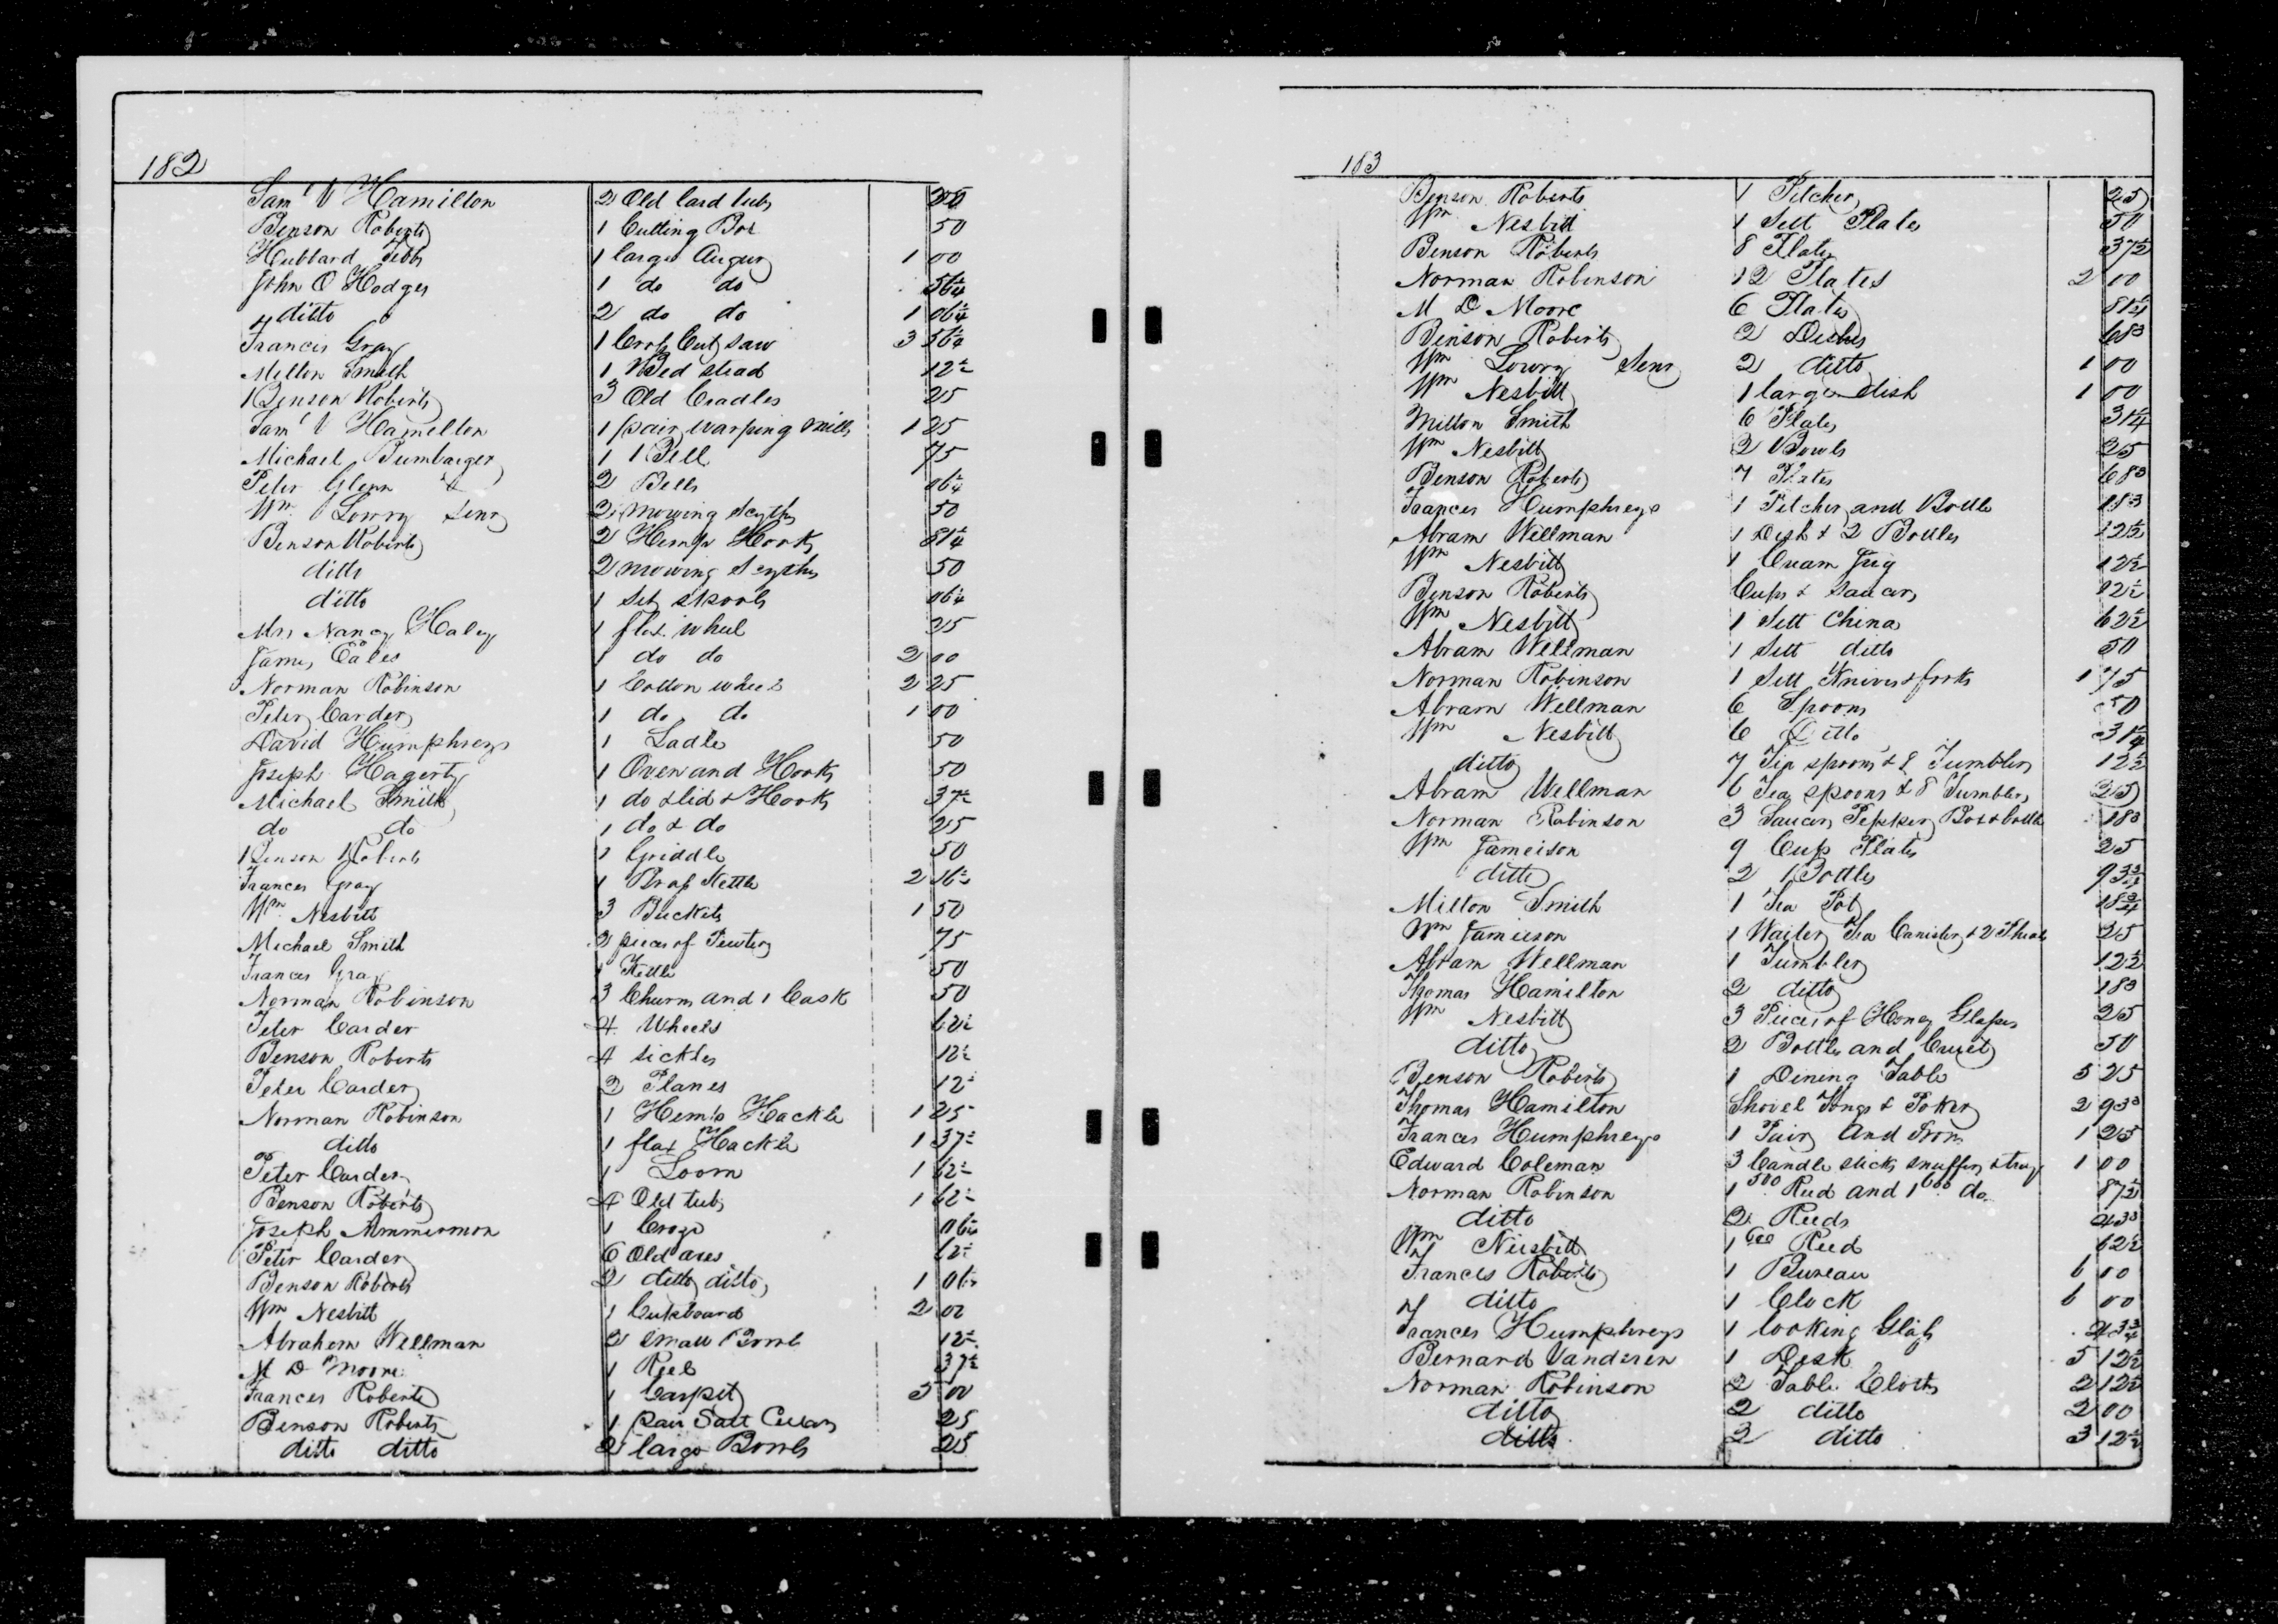 182
Sam'l V Hamilton 2 Old lard tubs 50
Benson Roberts 1 Cutting Box 50
Hubbard 1 large Augur 1 00
John O Hodges 1 do do 56¼
ditto 2 do do 1 06¼
Frances Gray 1 Cross Cut saw 3 56¼
Milton Smith 1 Bed stead 12½
Benson Roberts 3 Old Cradles 25
Sam'l V Hamilton 1 pair warping mills 1 25
Michael Bumbarger 1 Bell 75
Peter Glenn 2 Bells 06¼
Wm Lowry Senr 2 mowing scythes 50
Benson Roberts 2 Hemp Hooks
ditto 2 mowing Scythes 50
ditto 1 Set spools 06¼
Mrs Nancy Haley 1 flax wheel 25
James Eales 1 do do 2 00
Norman Robinson 1 Cotton wheel 2 25
Peter Carder 1 do do 1 00
David Humphreys 1 Ladle 50
Joseph Hagerty 1 Oven and Hooks 50
Michael Smith 1 do & lid & Hooks 37½
do do 1 do & do 25
Benson Roberts 1 Griddle 50
Frances Gray 1 Brass Kettle 2
Wm Nesbitt 3 Buckets 1 50
Michael Smith 2 pieces of Pewter 75
Frances Gray 1 Kettle 50
Norman Robinson 3 Churns and 1 Cask 50
Peter Carder 4 Wheels 62½
Benson Roberts 4 sickles 12½
Peter Carder 2 Planes 12½
Norman Robinson 1 Hemp Hackle 1 25
ditto 1 flax Hackle 1 37½
Peter Carder 1 Loom 1 62½
Benson Roberts 4 Old tubs 1 62½
Joseph Ammermon 1 Croze 06¼
Peter Carder 6 Old axes 62½
Benson Roberts 2 ditto ditto 1
Wm Nesbitt 1 Cupboard 2 00
Abraham Wellman 2 small Bowls 12½
M D Moore 1 Reel 37½
Frances Roberts 1 Carpet 5 00
Benson Roberts 1 pair Salt Cellars 25
ditto ditto 2 large Bowls 25
183
Benson Roberts 1 Pitcher 25
Wm Nesbitt 1 Sett Plates 50
Benson Roberts 8 Plates 37½
Norman Robinson 12 Plates 2 00
M D Moore 6 Plates 81¼
Benson Roberts 2 Dishes 68¾
Wm Lowry Senr 2 ditto 1 00
Wm Nesbitt 1 large dish 1 00
Milton Smith 6 Plates 31¼
Wm Nesbitt 2 Bowls 25
Benson Roberts 7 Plates 68¾
Frances Humphreys 1 Pitcher and Bottle 18¾
Abram Wellman 1 Dish & 2 Bottles 12½
Wm Nesbitt 1 Cream Jug 12½
Benson Roberts Cups & Saucers 12½
Wm Nesbitt 1 Sett China 62½
Abram Wellman 1 Sett ditto 50
Norman Robinson 1 Sett Knives & forks 1 75
Abram Wellman 6 Spoons 50
Wm Nesbitt 6 Ditto 31¼
ditto 7 Tea spoons & 8 Tumblers 12½
Abram Wellman 6 Tea spoons & 8 Tumblers 25
Norman Robinson 3 Saucers Pepper Box & bottle 18¾
Wm Jameison 9 Cup Plates 25
ditto 2 Bottles 93¾
Milton Smith 1 Tea Pot 18¾
Wm Jameison 1 Waiter Tea Canister & 2 25
Abram Wellman 1 Tumbler 12½
Thomas Hamilton 2 ditto 18¾
Wm Nesbitt 3 Pieces of Honey Glasses 25
ditto 2 Bottles and Cruet 50
Benson Roberts 1 Dining Table 5 25
Thomas Hamilton Shovel Tongs & Poker 2 93¾
Frances Humphreys 1 Pair And Irons 1 25
Edward Coleman 3 Candle sticks snuffers & tray 1 00
Norman Robinson 1 500 Reed and 1 600 do 87½
ditto 2 Reeds 43¾
Wm Neisbitt 1 600 Reed 62½
Frances Roberts 1 Bureau 6 00
ditto 1 Clock 6 00
Frances Humphreys 1 looking Glass 43¾
Bernard Vanderen 1 Desk 5 12½
Norman Robinson 2 Table Cloths 2 12½
ditto 2 ditto 2 00
ditto 2 ditto 3 12½